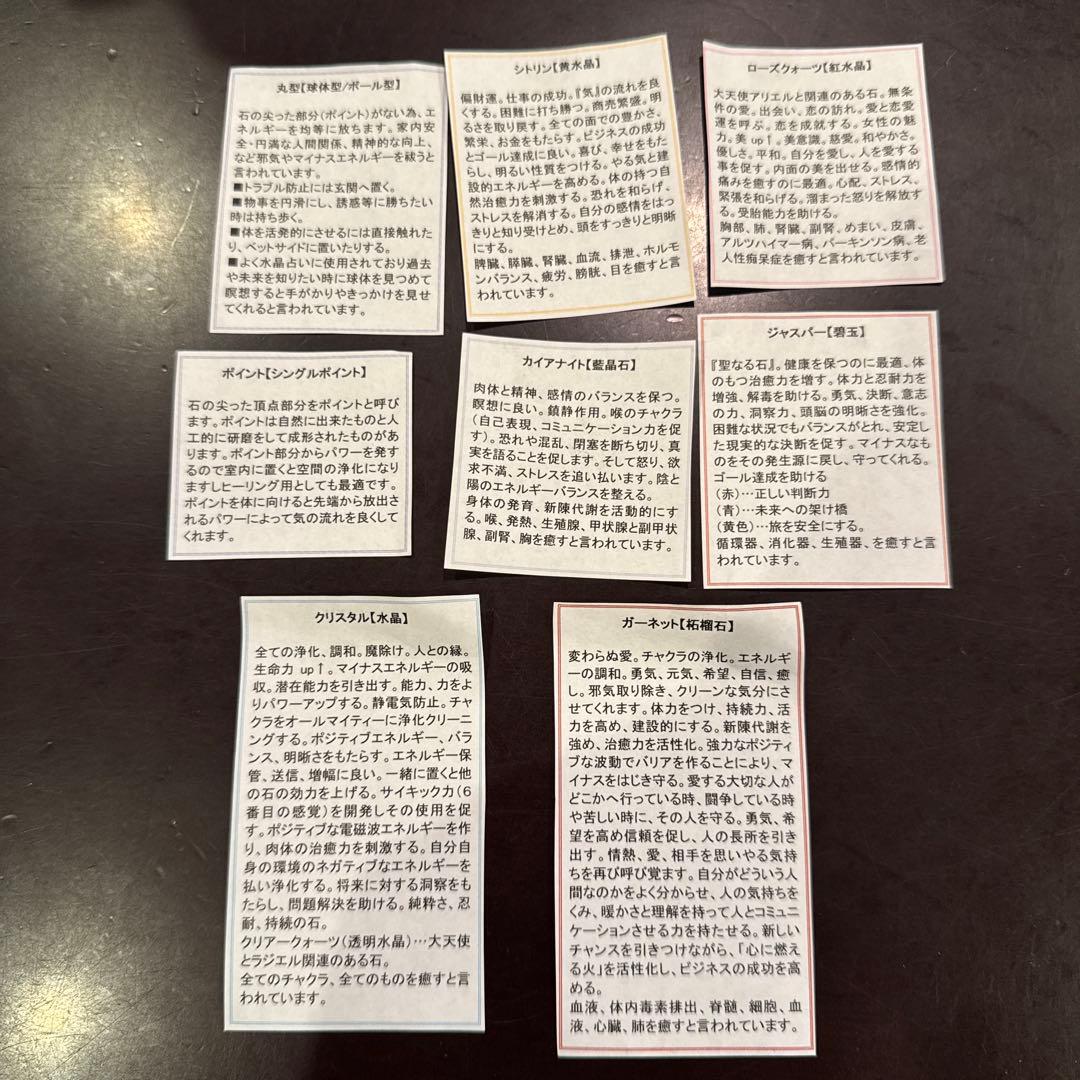 丸型【球体型/ボール型】
石の尖った部分(ポイント)がない為、エ
ネルギーを均等に放ちます。家内安
全・円満な人間関係、精神的な向上、
など邪気やマイナスエネルギーを祓うと
言われています。
■トラブル防止には玄関へ置く。
■物事を円滑にし、誘惑等に勝ちたい
時は持ち歩く。
■体を活発的にさせるには直接触れた
り、ベットサイドに置いたりする。
■よく水晶占いに使用されており過去
や未来を知りたい時に球体を見つめて
瞑想すると手がかりやきっかけを見せ
てくれると言われています。
シトリン【黄水晶】
偏財運。仕事の成功。『気』の流れを良
くする。困難に打ち勝つ。商売繁盛。明
るさを取り戻す。全ての面での豊かさ、
繁栄、お金をもたらす。ビジネスの成功
とゴール達成に良い。喜び、幸せをもた
らし、明るい性質をつける。やる気と建
設的エネルギーを高める。体の持つ自
然治癒力を刺激する。恐れを和らげ、
ストレスを解消する。自分の感情をはっ
きりと知り受けとめ、頭をすっきりと明晰
にする。
脾臓、膵臓、腎臓、血流、排泄、ホルモ
ンバランス、疲労、膀胱、目を癒すと言
われています。
ローズクォーツ【紅水晶】
大天使アリエルと関連のある石。無条
件の愛。出会い。恋の訪れ。愛と恋愛
運を呼ぶ。恋を成就する。女性の魅
力。美 up↑。美意識。慈愛。和やかさ。
優しさ。平和。自分を愛し、人を愛する
事を促す。内面の美を出せる。感情的
痛みを癒すのに最適。心配、ストレス、
緊張を和らげる。溜まった怒りを解放す
る。受胎能力を助ける。
胸部、肺、腎臓、副腎、めまい、皮膚、
アルツハイマー病、パーキンソン病、老
人性痴呆症を癒すと言われています。
ポイント【シングルポイント】
石の尖った頂点部分をポイントと呼び
ます。ポイントは自然に出来たものと人
工的に研磨をして成形されたものがあ
ります。ポイント部分からパワーを発す
るので室内に置くと空間の浄化になり
ますしヒーリング用としても最適です。
ポイントを体に向けると先端から放出さ
れるパワーによって気の流れを良くして
くれます。
カイアナイト【藍晶石】
肉体と精神、感情のバランスを保つ。
瞑想に良い。鎮静作用。喉のチャクラ
(自己表現、コミュニケーション力を促
す)。恐れや混乱、閉塞を断ち切り、真
実を語ることを促します。そして怒り、欲
求不満、ストレスを追い払います。陰と
陽のエネルギーバランスを整える。
身体の発育、新陳代謝を活動的にす
る。喉、発熱、生殖腺、甲状腺と副甲状
腺、副腎、胸を癒すと言われています。
ジャスパー【碧玉】
『聖なる石』。健康を保つのに最適。体
のもつ治癒力を増す。体力と忍耐力を
増強、解毒を助ける。勇気、決断、意志
の力、洞察力、頭脳の明晰さを強化。
困難な状況でもバランスがとれ、安定し
た現実的な決断を促す。マイナスなも
のをその発生源に戻し、守ってくれる。
ゴール達成を助ける
(赤)…正しい判断力
(青)…未来への架け橋
(黄色)…旅を安全にする。
循環器、消化器、生殖器、を癒すと言
われています。
クリスタル【水晶】
全ての浄化、調和。魔除け。人との縁。
生命力 up↑。マイナスエネルギーの吸
収。潜在能力を引き出す。能力、力をよ
りパワーアップする。静電気防止。チャ
クラをオールマイティーに浄化クリーニ
ングする。ポジティブエネルギー、バラ
ンス、明晰さをもたらす。エネルギー保
管、送信、増幅に良い。一緒に置くと他
の石の効力を上げる。サイキック力(6
番目の感覚)を開発しその使用を促
す。ポジティブな電磁波エネルギーを作
り、肉体の治癒力を刺激する。自分自
身の環境のネガティブなエネルギーを
払い浄化する。将来に対する洞察をも
たらし、問題解決を助ける。純粋さ、忍
耐、持続の石。
クリアークォーツ(透明水晶)…大天使
とラジエル関連のある石。
全てのチャクラ、全てのものを癒すと言
われています。
ガーネット【柘榴石】
変わらぬ愛。チャクラの浄化。エネルギ
ーの調和。勇気、元気、希望、自信、癒
し。邪気取り除き、クリーンな気分にさ
せてくれます。体力をつけ、持続力、活
力を高め、建設的にする。新陳代謝を
強め、治癒力を活性化。強力なポジティ
ブな波動でバリアを作ることにより、マ
イナスをはじき守る。愛する大切な人が
どこかへ行っている時、闘争している時
や苦しい時に、その人を守る。勇気、希
望を高め信頼を促し、人の長所を引き
出す。情熱、愛、相手を思いやる気持
ちを再び呼び覚ます。自分がどういう人
間なのかをよく分からせ、人の気持ちを
くみ、暖かさと理解を持って人とコミュニ
ケーションさせる力を持たせる。新しい
チャンスを引きつけながら、「心に燃え
る火」を活性化し、ビジネスの成功を高
める。
血液、体内毒素排出、脊髄、細胞、血
液、心臓、肺を癒すと言われています。